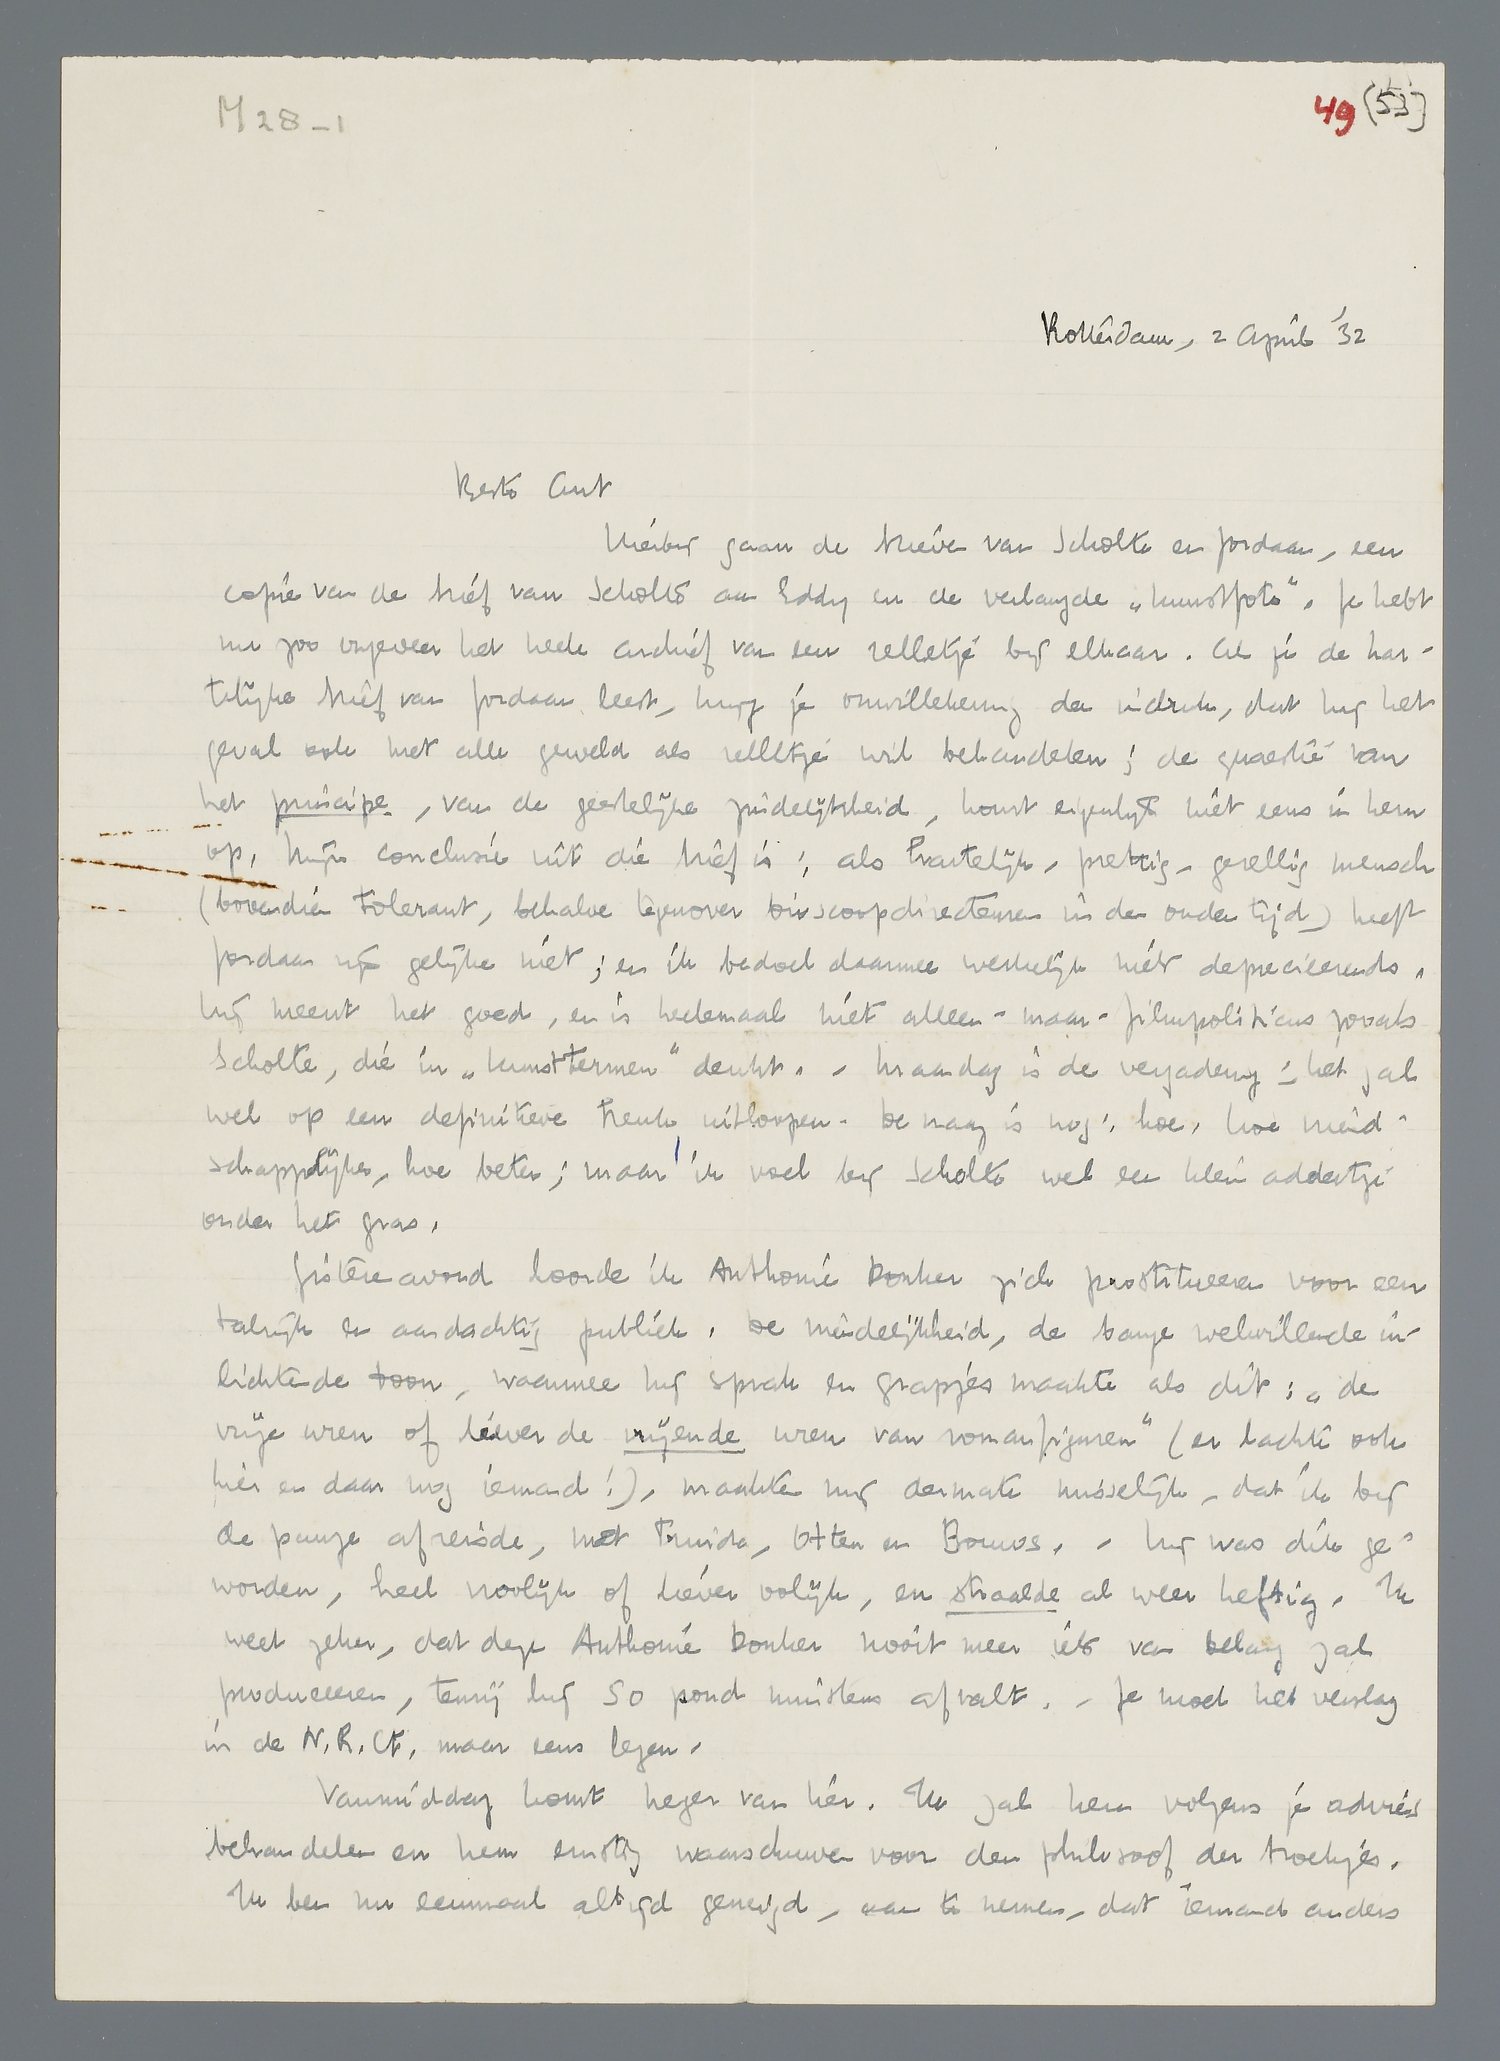 M 28-1
49 (53)
Rotterdam, 2 April '32
Beste Ant
Hierbij gaan de brieven van Scholte en Jordaan, een
copie van de brief van Scholte aan Eddy en de verlangde „kunstfoto". Je hebt
nu zoo ongeveer het heele archief van een relletje bij elkaar. Als je de har-
telijke brief van Jordaan leest, krijg je onwillekeurig den indruk, dat hij het
geval ook met alle geweld als relletje wil behandelen; de quaestie van
het principe, van de geestelijke zindelijkheid, komt eigenlijk niet eens in hem
op. Mijn conclusie uit die brief is: als hartelijk, prettig, gezellig mensch
(bovendien tolerant, behalve tegenover bioscoopdirecteuren in den ouden tijd) heeft
Jordaan zijns gelijke niet; en ik bedoel daarmee werkelijk niets deprecieerends.
Hij meent het goed, en is heelemaal niet alleen-maar-filmpoliticus zooals
Scholte, die in „kunsttermen" denkt. - Maandag is de vergadering; het zal
wel op een definitieve breuk uitloopen. De vraag is nog: hoe. Hoe vriend-
schappelijker, hoe beter; maar ik voel bij Scholte wel een klein addertje
onder het gras.
Gisterenavond hoorde ik Anthonie Donker zich prostitueeren voor een
talrijk en aandachtig publiek. De mindelijkheid, de bange welwillende in-
lichtende toon, waarmee hij sprak en grapjes maakte als dit: „de
vrije uren of liever de vrijende uren van romanfiguren" (er lachte ook
hier en daar nog iemand!), maakten mij dermate misselijk, dat ik bij
de pauze afreisde, met Truida, Otten en Bouws. - Hij was dik ge-
worden, heel vroolijk of liever olijk, en straalde al weer heftig. Ik
weet zeker, dat deze Anthonie Donker nooit meer iets van belang zal
produceeren, tenzij hij 50 pond minstens afvalt. - Je moet het verslag
in de N.R.Ct. maar eens lezen.
Vanmiddag komt heger van hier. Ik zal hem volgens je advies
behandelen en hem ernstig waarschuwen voor den philosoof der broekjes.
Ik ben nu eenmaal altijd geneigd, aan te nemen, dat iemand anders